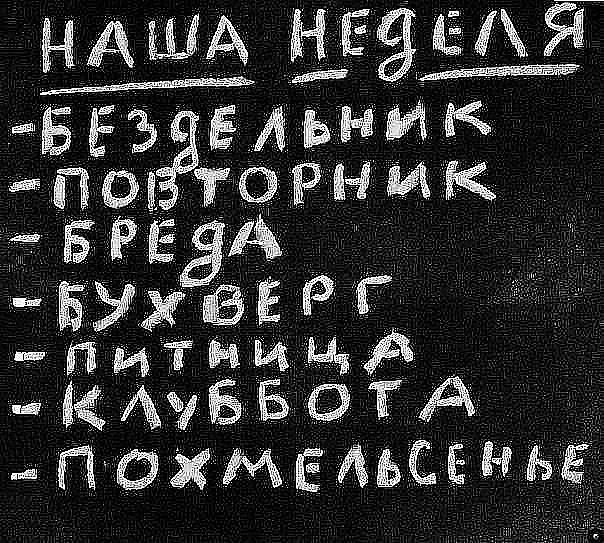 НАША НЕДЕЛЯ
- БЕЗДЕЛЬНИК
- ПОВТОРНИК
- БРЕДА
- БУХВЕРГ
- ПИТНИЦА
- КЛУББОТА
- ПОХМЕЛЬСЕНЬЕ